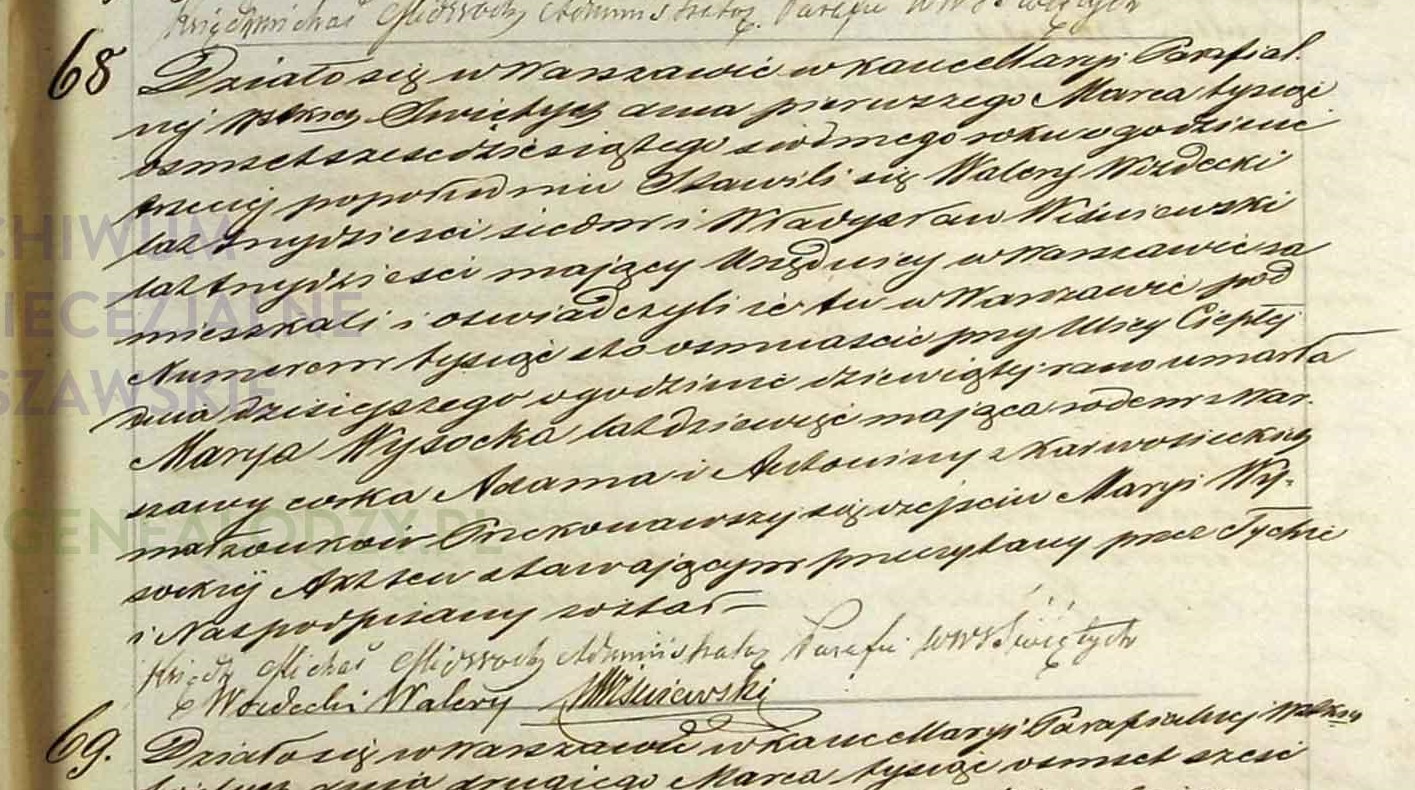 Ksiądz Michał Administrator Parafii WWSświętych
68
Działo się w Warszawie w kancellaryi Parafial.
nej Świętych dnia pierwszego Marca tysiąc
osmset sześcdziesiątego siodmego roku o godzinie
trzeciej popołudniu Stawili się Walery
lat trzydziesci siedm i Władysław Wiśniewski
lat trzydziesci mający Urzędnicy w Warszawie za
mieszkali i oswiadczyli że tu w Warszawie pod
Numerem tysiąc sto osmnascie przy Ulicy Ciepłej
dnia dzisiejszego o godzinie dziewiątej rano umarła
Marya Wysocka lat dziewięć mająca rodem z War.
szawy corka Adama i Antoniny z Karwosieckich
małżonków Przekonawszy się o zejściu Maryi Wy-
sockiej Akt ten stawającym przeczytany przez Tychże
i Nas podpisany został
Ksiądz Michał Administrator Parafii WWSświętych
Walery WWiśniewski
69.
Działo się w Warszawie w kancellaryi Parafialnej
dnia drugiego Marca tysiąc osmset sześć
CHIWUM
IECEZJALNE
SZAWSKIE
GENEALODZY.PL